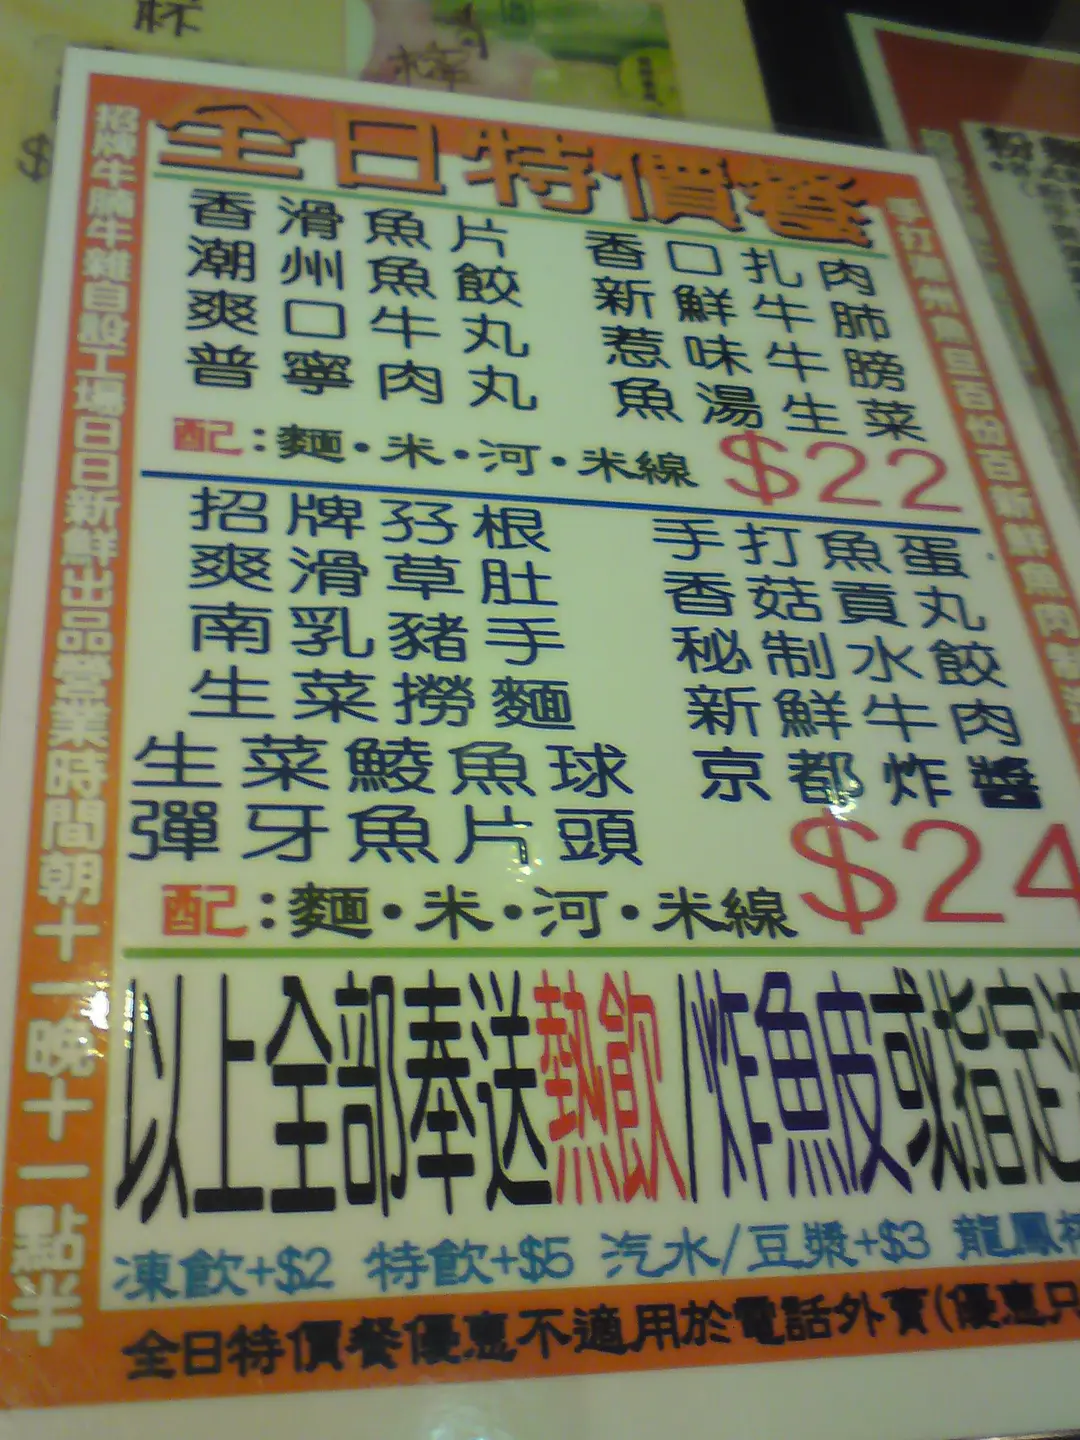 全日特價餐
香滑魚片 香口扎肉
潮州魚餃 新鮮牛肺
爽口牛丸 惹味牛膀
普寧肉丸 魚湯生菜
配:麵•米•河•米線 $22
招牌孖根 手打魚蛋
爽滑草肚 香菇貢丸
南乳豬手 秘制水餃
生菜撈麵 新鮮牛肉
生菜鯪魚球 京都炸醬
彈牙魚片頭
配:麵•米•河•米線 $24
以上全部奉送熱飲/炸魚皮或指定
凍飲+$2 特飲+$5 汽水/豆漿+$3 龍鳳
全日特價餐優惠不適用於電話外賣(優惠只
招牌牛腩牛雜自設工場日日新鮮出品營業時間朝十一晚十一點半
手打潮州魚旦百份百新鮮魚肉制造
杯
$
粉麵